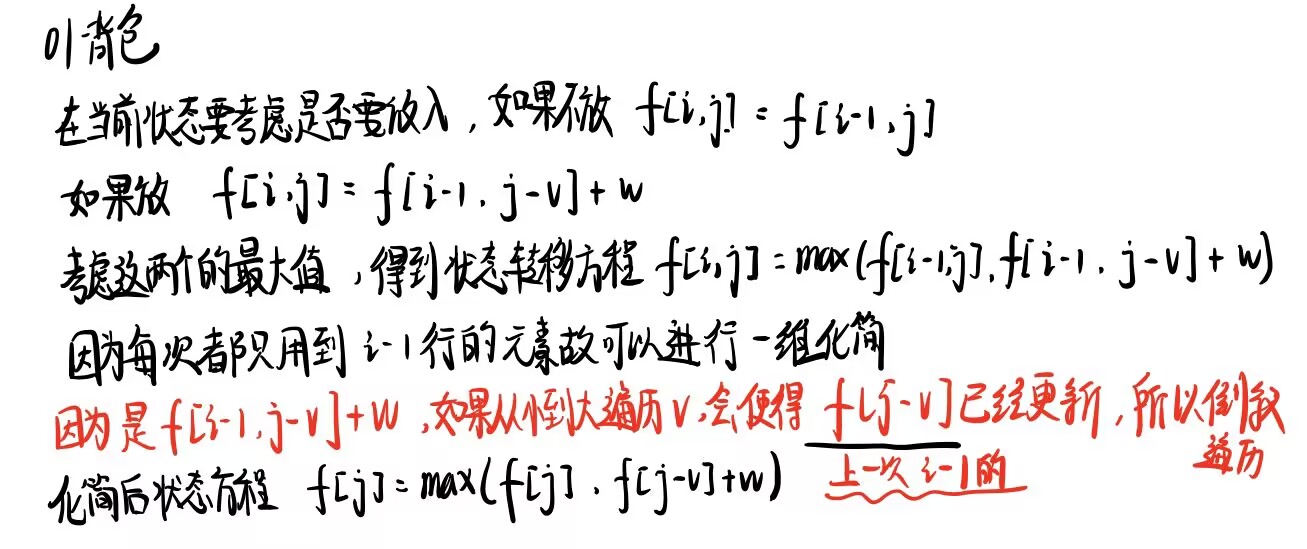 01背包
在当前状态要考虑是否要放入，如果不放 f[i,j] = f[i-1,j]
如果放 f[i,j] = f[i-1, j-v] + w
考虑这两个的最大值，得到状态转移方程 f[i,j] = max(f[i-1,j], f[i-1, j-v] + w)
因为每次都只用到 i-1 行的元素故可以进行一维化简
因为是 f[i-1, j-v] + w，如果从小到大遍历 v，会使得 f[j-v] 已经更新，所以倒叙
遍历
上一次 i-1 的
化简后状态方程 f[j] = max(f[j], f[j-v]+w)